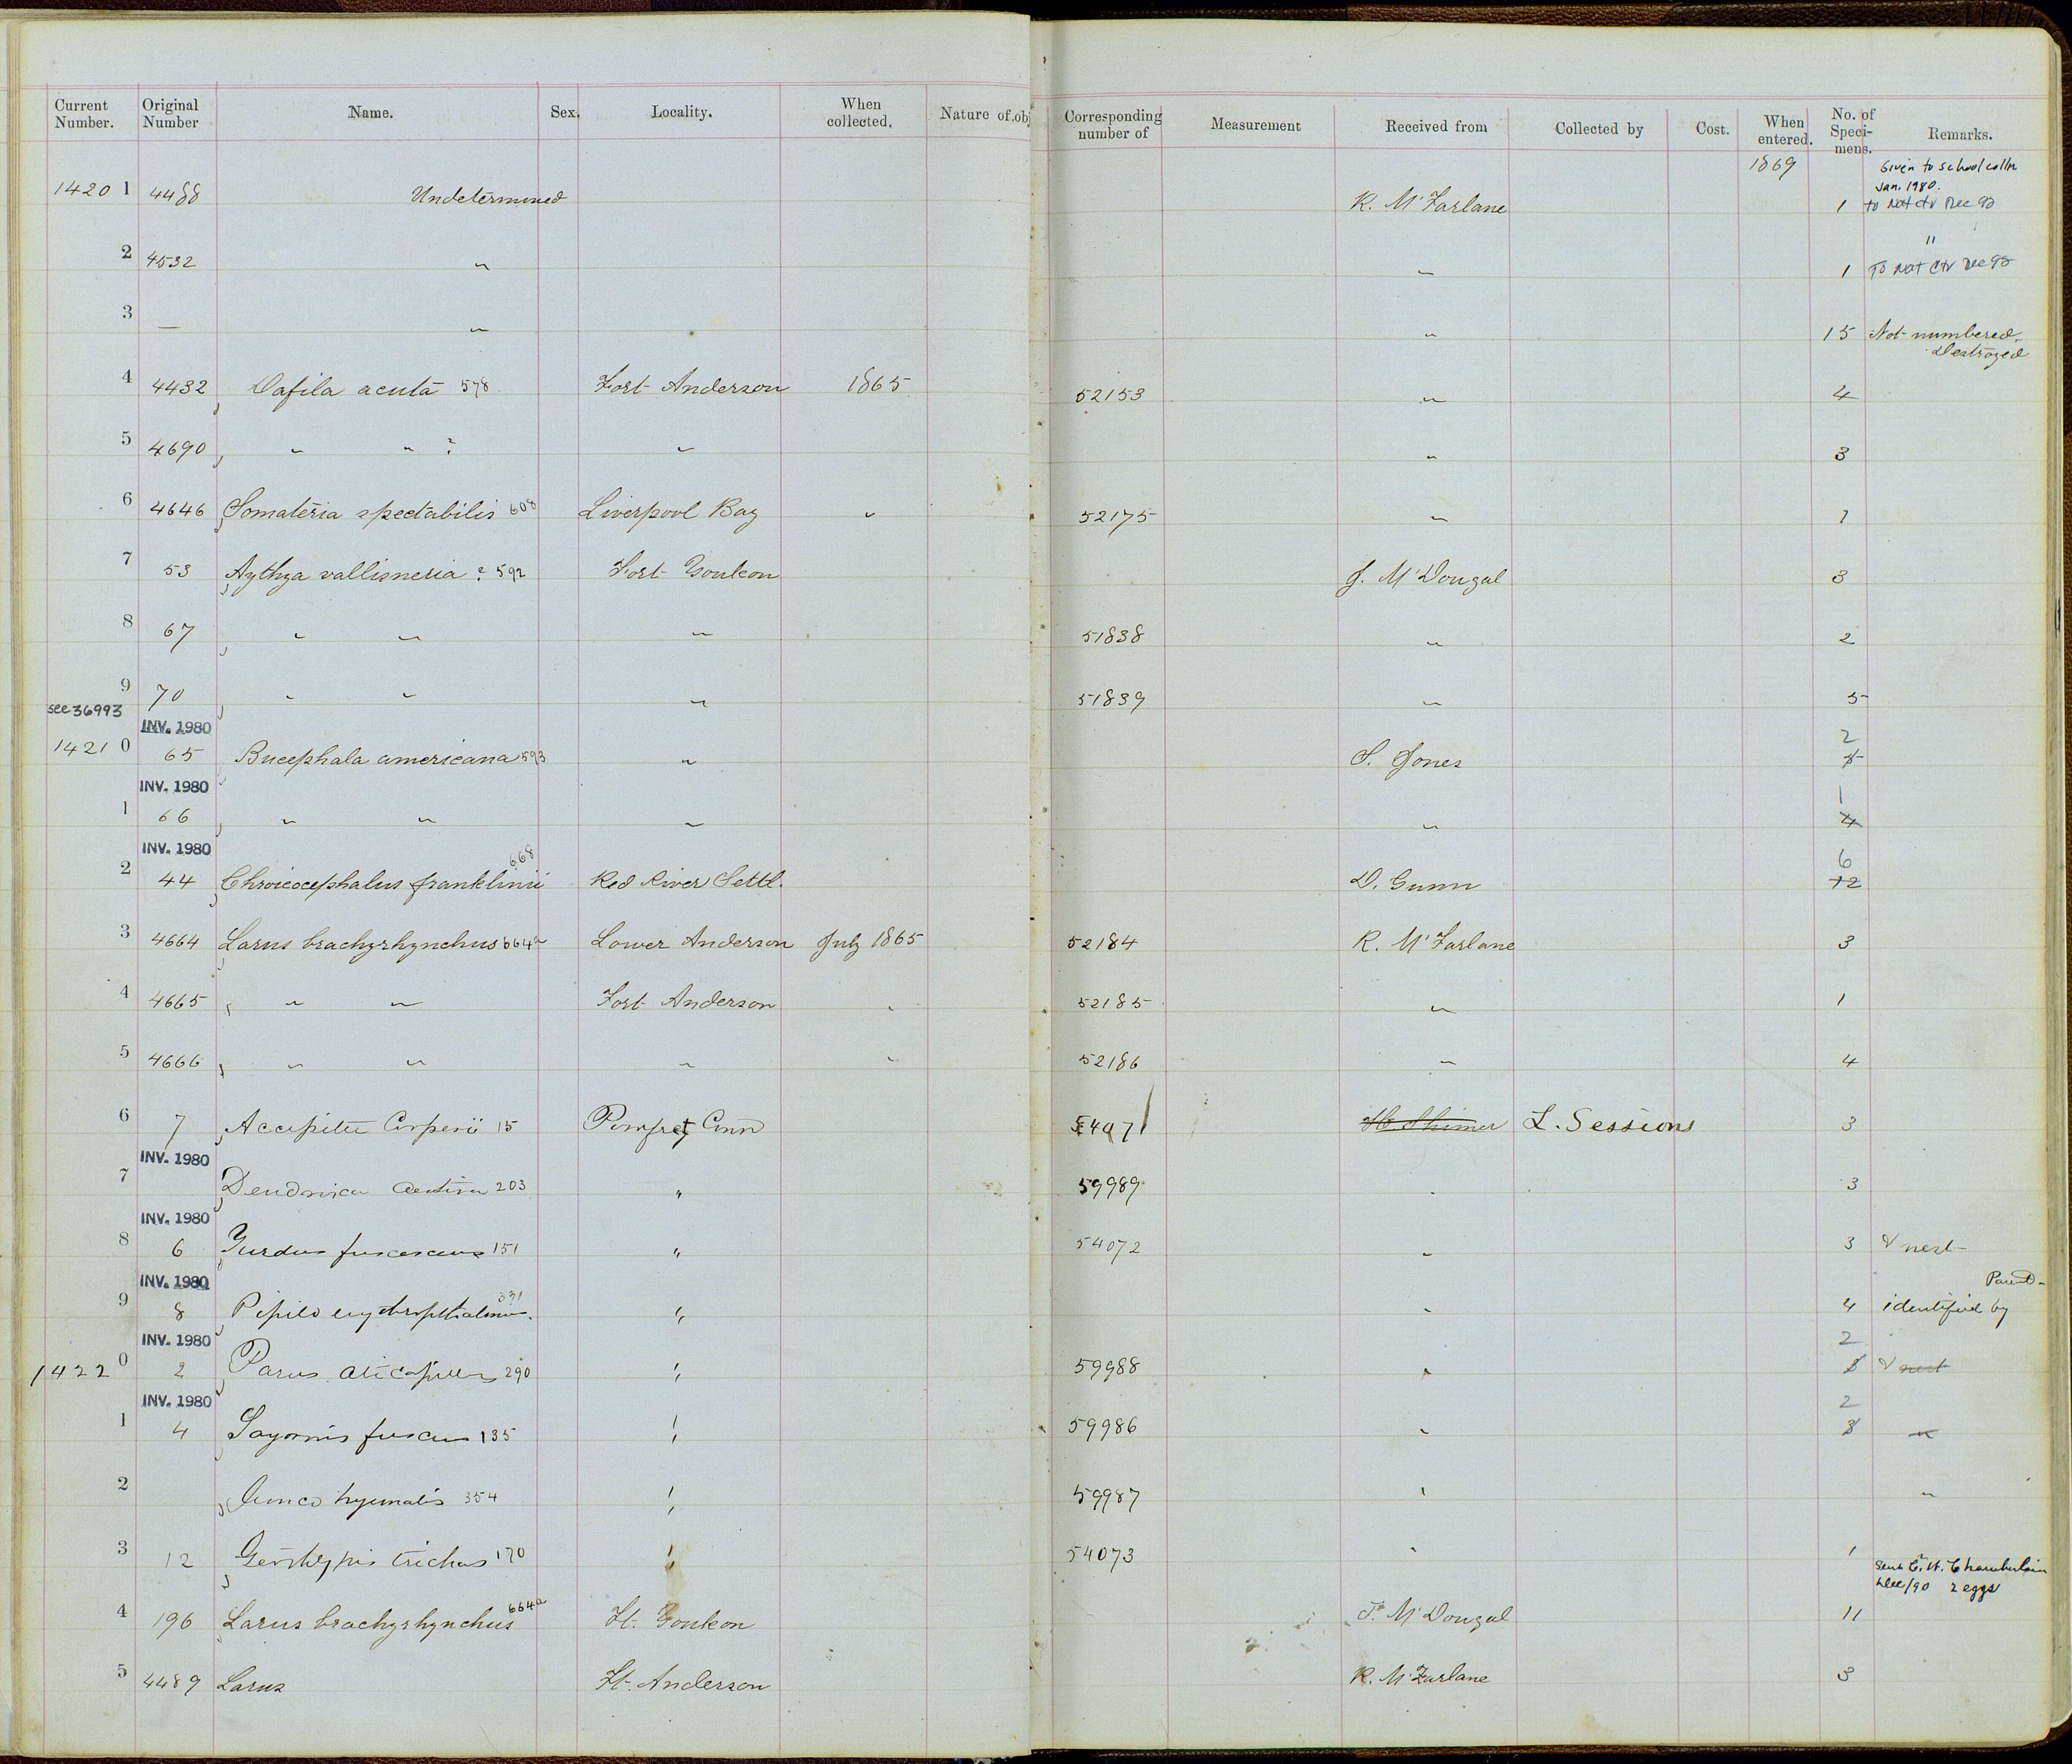 Current Number. Original Number Name. Sex. Locality. When collected. Nature of obj Corresponding number of Measurement Received from Collected by Cost. When entered. No. of Speci-mens. Remarks.
1869 Given to school colln
Jan. 1980.
14201 4488 Undetermined R. McFarlane 1 to Nat ctr Dec 92
"
2 4532 " " 1 To Nat Ctr Dec 92
3 — " " 15 Not numbered.
Destroyed
4 4432 Dafila acuta 578 Fort Anderson 1865 52153 " 4
5 4690 " " ? " " 3
6 4646 Somateria spectabilis 608 Liverpool Bay " 52175 " 1
7 53 Aythya vallisneria ? 592 Fort Youkon J. McDougal 3
8 67 " " " 51838 " 2
9 70 " " " 51839 " 5
see 36993
INV. 1980 2
14210 65 Bucephala americana 593 " S. Jones 5
INV. 1980 1
1 66 " " " " 4
INV. 1980 668 6
2 44 Chroicocephalus franklinii Red River Settl. D. Gunn 12
3 4664 Larus brachyrhynchus 664a Lower Anderson July 1865 52184 R. McFarlane 3
4 4665 " " Fort Anderson " 52185 " 1
5 4666 " " " " 52186 " 4
6 7 Accipiter Cooperii 15 Pomfret Conn 54071 H Shimer L. Sessions 3
INV. 1980
7 Dendroica aestiva 203 " 59989 " 3
INV. 1980
8 6 Turdus fuscescens 151 " 54072 " 3 & nest
INV. 1980 331 Parent
9 8 Pipilo erythropthalmus. " " 4 identified by
INV. 1980 2
14220 2 Parus atricapillus 290 " 59988 " & nest
INV. 1980 2
1 4 Sayornis fuscus 135 " 59986 " 3 "
2 Junco hyemalis 354 " 59987 " "
3 12 Geothlypis trichas 170 " 54073 " 1
Sent C. W. Chamberlain
Dec/90 2 eggs
664a
4 196 Larus brachyrhynchus Ft. Youkon J. McDougal 11
5 4489 Larus Ft. Anderson R. McFarlane 3